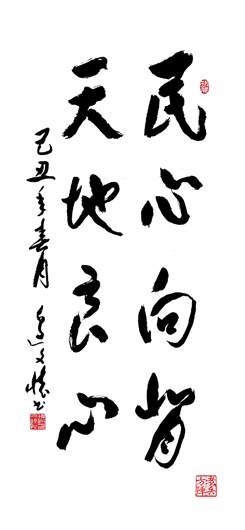 民心向背
天地良心
己丑年春月
文怀书